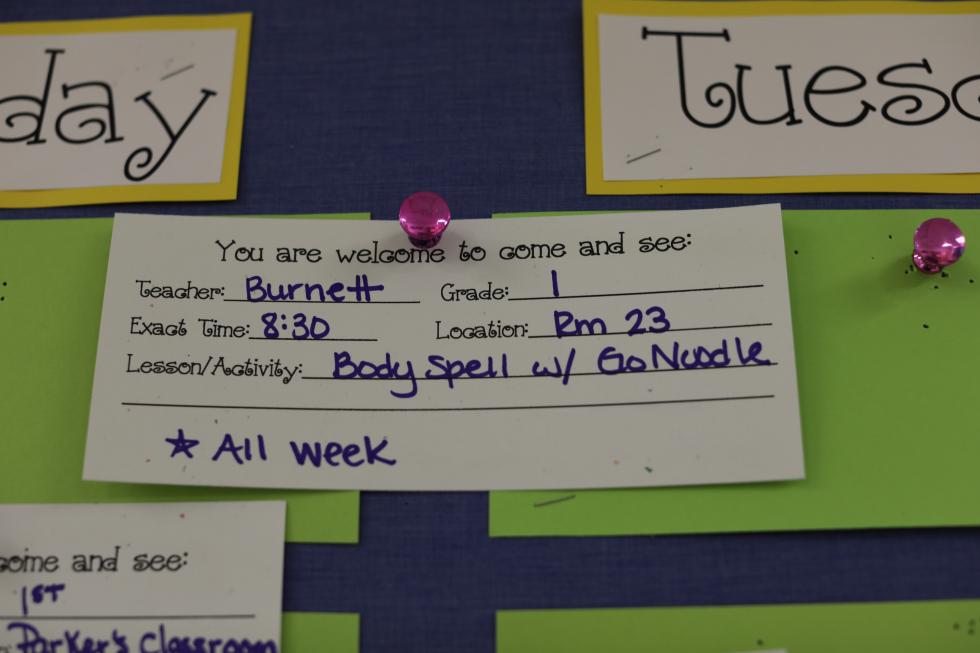 day
Tuesd
You are welcome to come and see:
Teacher: Burnett Grade: 1
Exact Time: 8:30 Location: Rm 23
Lesson/Activity: Body Spell w/ GoNoodle
★ All week
come and see:
1ST
Parker's Classroom